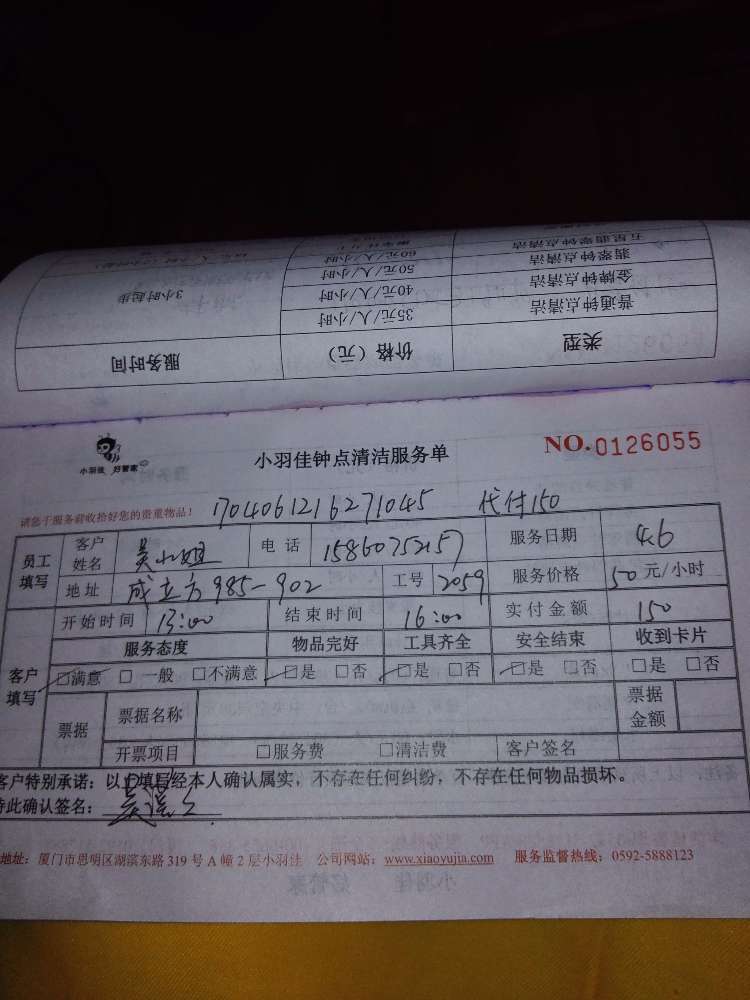 五星翡翠钟点清洁 60元/人/小时
翡翠钟点清洁 50元/人/小时
金牌钟点清洁 40元/人/小时 3小时起步
普通钟点清洁 35元/人/小时
类型 价格（元） 服务时间
小羽佳 好管家
小羽佳钟点清洁服务单
NO.0126055
请您于服务前收拾好您的贵重物品！ 1704061216271045 代付150
员工填写 客户姓名 吴小姐 电话 15860752157 服务日期 4.6
地址 成立方985-902 工号 2059 服务价格 50元/小时
客户填写 开始时间 13:00 结束时间 16:00 实付金额 150
服务态度 物品完好 工具齐全 安全结束 收到卡片
□满意 □一般 □不满意 □是 □否 □是 □否 □是 □否 □是 □否
票据 票据名称 票据金额
开票项目 □服务费 □清洁费 客户签名
客户特别承诺：以上填写经本人确认属实，不存在任何纠纷，不存在任何物品损坏。
特此确认签名：
地址：厦门市思明区湖滨东路319号A幢2层小羽佳 公司网站：www.xiaoyujia.com 服务监督热线：0592-5888123